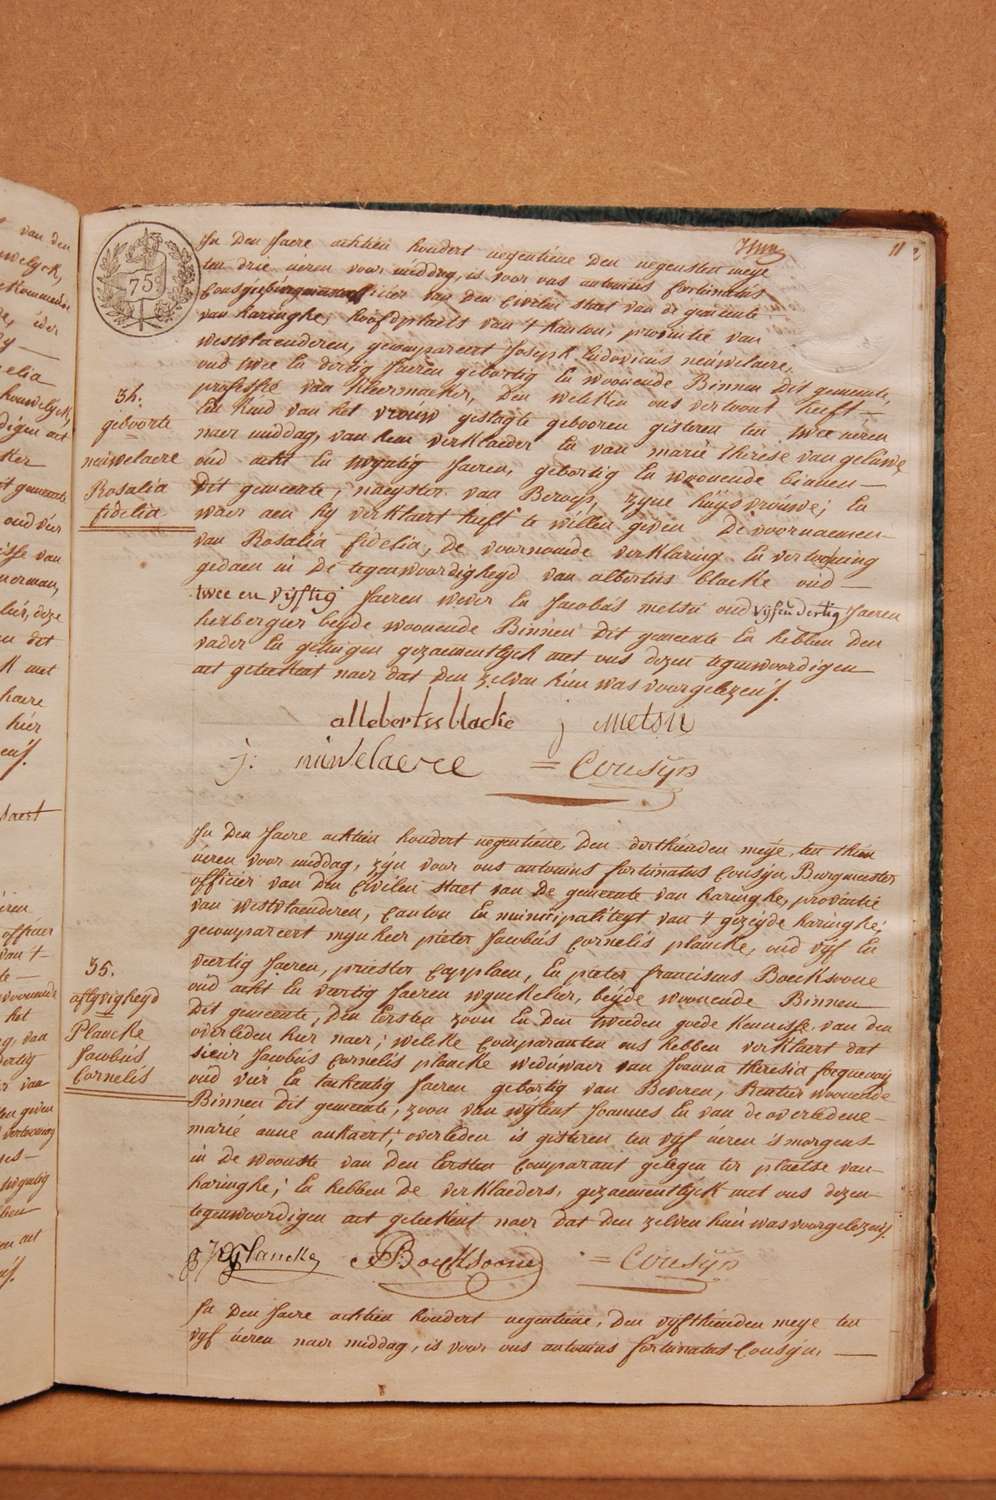 11
75
In den Jaere achtien hondert negentiene den negensten meye
ten drie ueren voor middag, is voor ons antonius fortunatus
Cousyn officier van den Civilen staet van de gemeente
van haringhe, hoofdplaets van 't kanton, provintie van
westvlaenderen, gecompareert Joseph Ludovicus neuwelaere,
oud twee en dertig Jaeren gebortig en woonende Binnen dit gemeente,
professie van kleermaeker, den welcken ons vertoont heeft
een kind van het vrouw geslagte gebooren gisteren ten twee ueren
naer middag, van hem verklaeder en van marie therese van geluwe
oud acht en twyntig Jaeren, gebortig en woonende binnen
dit gemeente, naeyster van Beroep, zyne huysvrouwe; en
waer aen hy verklaert heeft te willen geven de voornaemen
van Rosalia fidelia, de voornoemde verklaring en vertooning
gedaen in de tegenwoordigheyd van albertus blacke oud
twee en vyftig Jaeren wever en Jacobus metsu oud vyfendertig Jaeren
herbergier beyde woonende Binnen dit gemeente en hebben den
vader en getuigen gezaementlyck met ons dezen tegenwoordigen
act geteekent naer dat den zelven hun was voorgelezen /.
34.
geboorte
neuwelaere
Rosalia
fidelia
allebertss blackie j metsu
j: niuwelaeree = Cousyn
In den Jaere achtien hondert negentiene, den derthienden meye, ten thien
ueren voor middag, zyn voor ons antonius fortunatus Cousyn, Borgmeester
officier van den Civilen staet van de gemeente van haringhe, provintie
van westvlaenderen, canton en municipaliteyt van 't gezeyde haringhe;
gecompareert mynheer pieter Jacobus Cornelis plancke, oud vyf en
veertig Jaeren, priester Cappelaen, en pieter franciscus Boecksoone
oud acht en vartig Jaeren wynckelier, beyde woonende Binnen
dit gemeente, den eersten zoon en den tweeden goede kennisse van den
overleden hier naer; welcke comparanten ons hebben verklaert dat
sieur Jacobus Cornelis plancke weduwaer van Joanna theresia
oud vier en tachentig Jaeren gebortig van Beveren, Rentier woonende
Binnen dit gemeente, zoon van wylent Joannes en van de overledene
marie anne ankaert; overleden is gisteren ten vyf ueren s'morgens
in de woonste van den eersten comparant gelegen ter plaetse van
haringhe; en hebben de verklaeders, gezaementlyck met ons dezen
tegenwoordigen act geteekent naer dat den zelven hun was voorgelezen /.
35.
aflyvigheyd
Plancke
Jacobus
Cornelis
Plancke Boecksoone = Cousyn
In den Jaere achtien hondert negentiene, den vyfthienden meye ten
vyf ueren naer middag, is voor ons antonius fortunatus Cousyn,